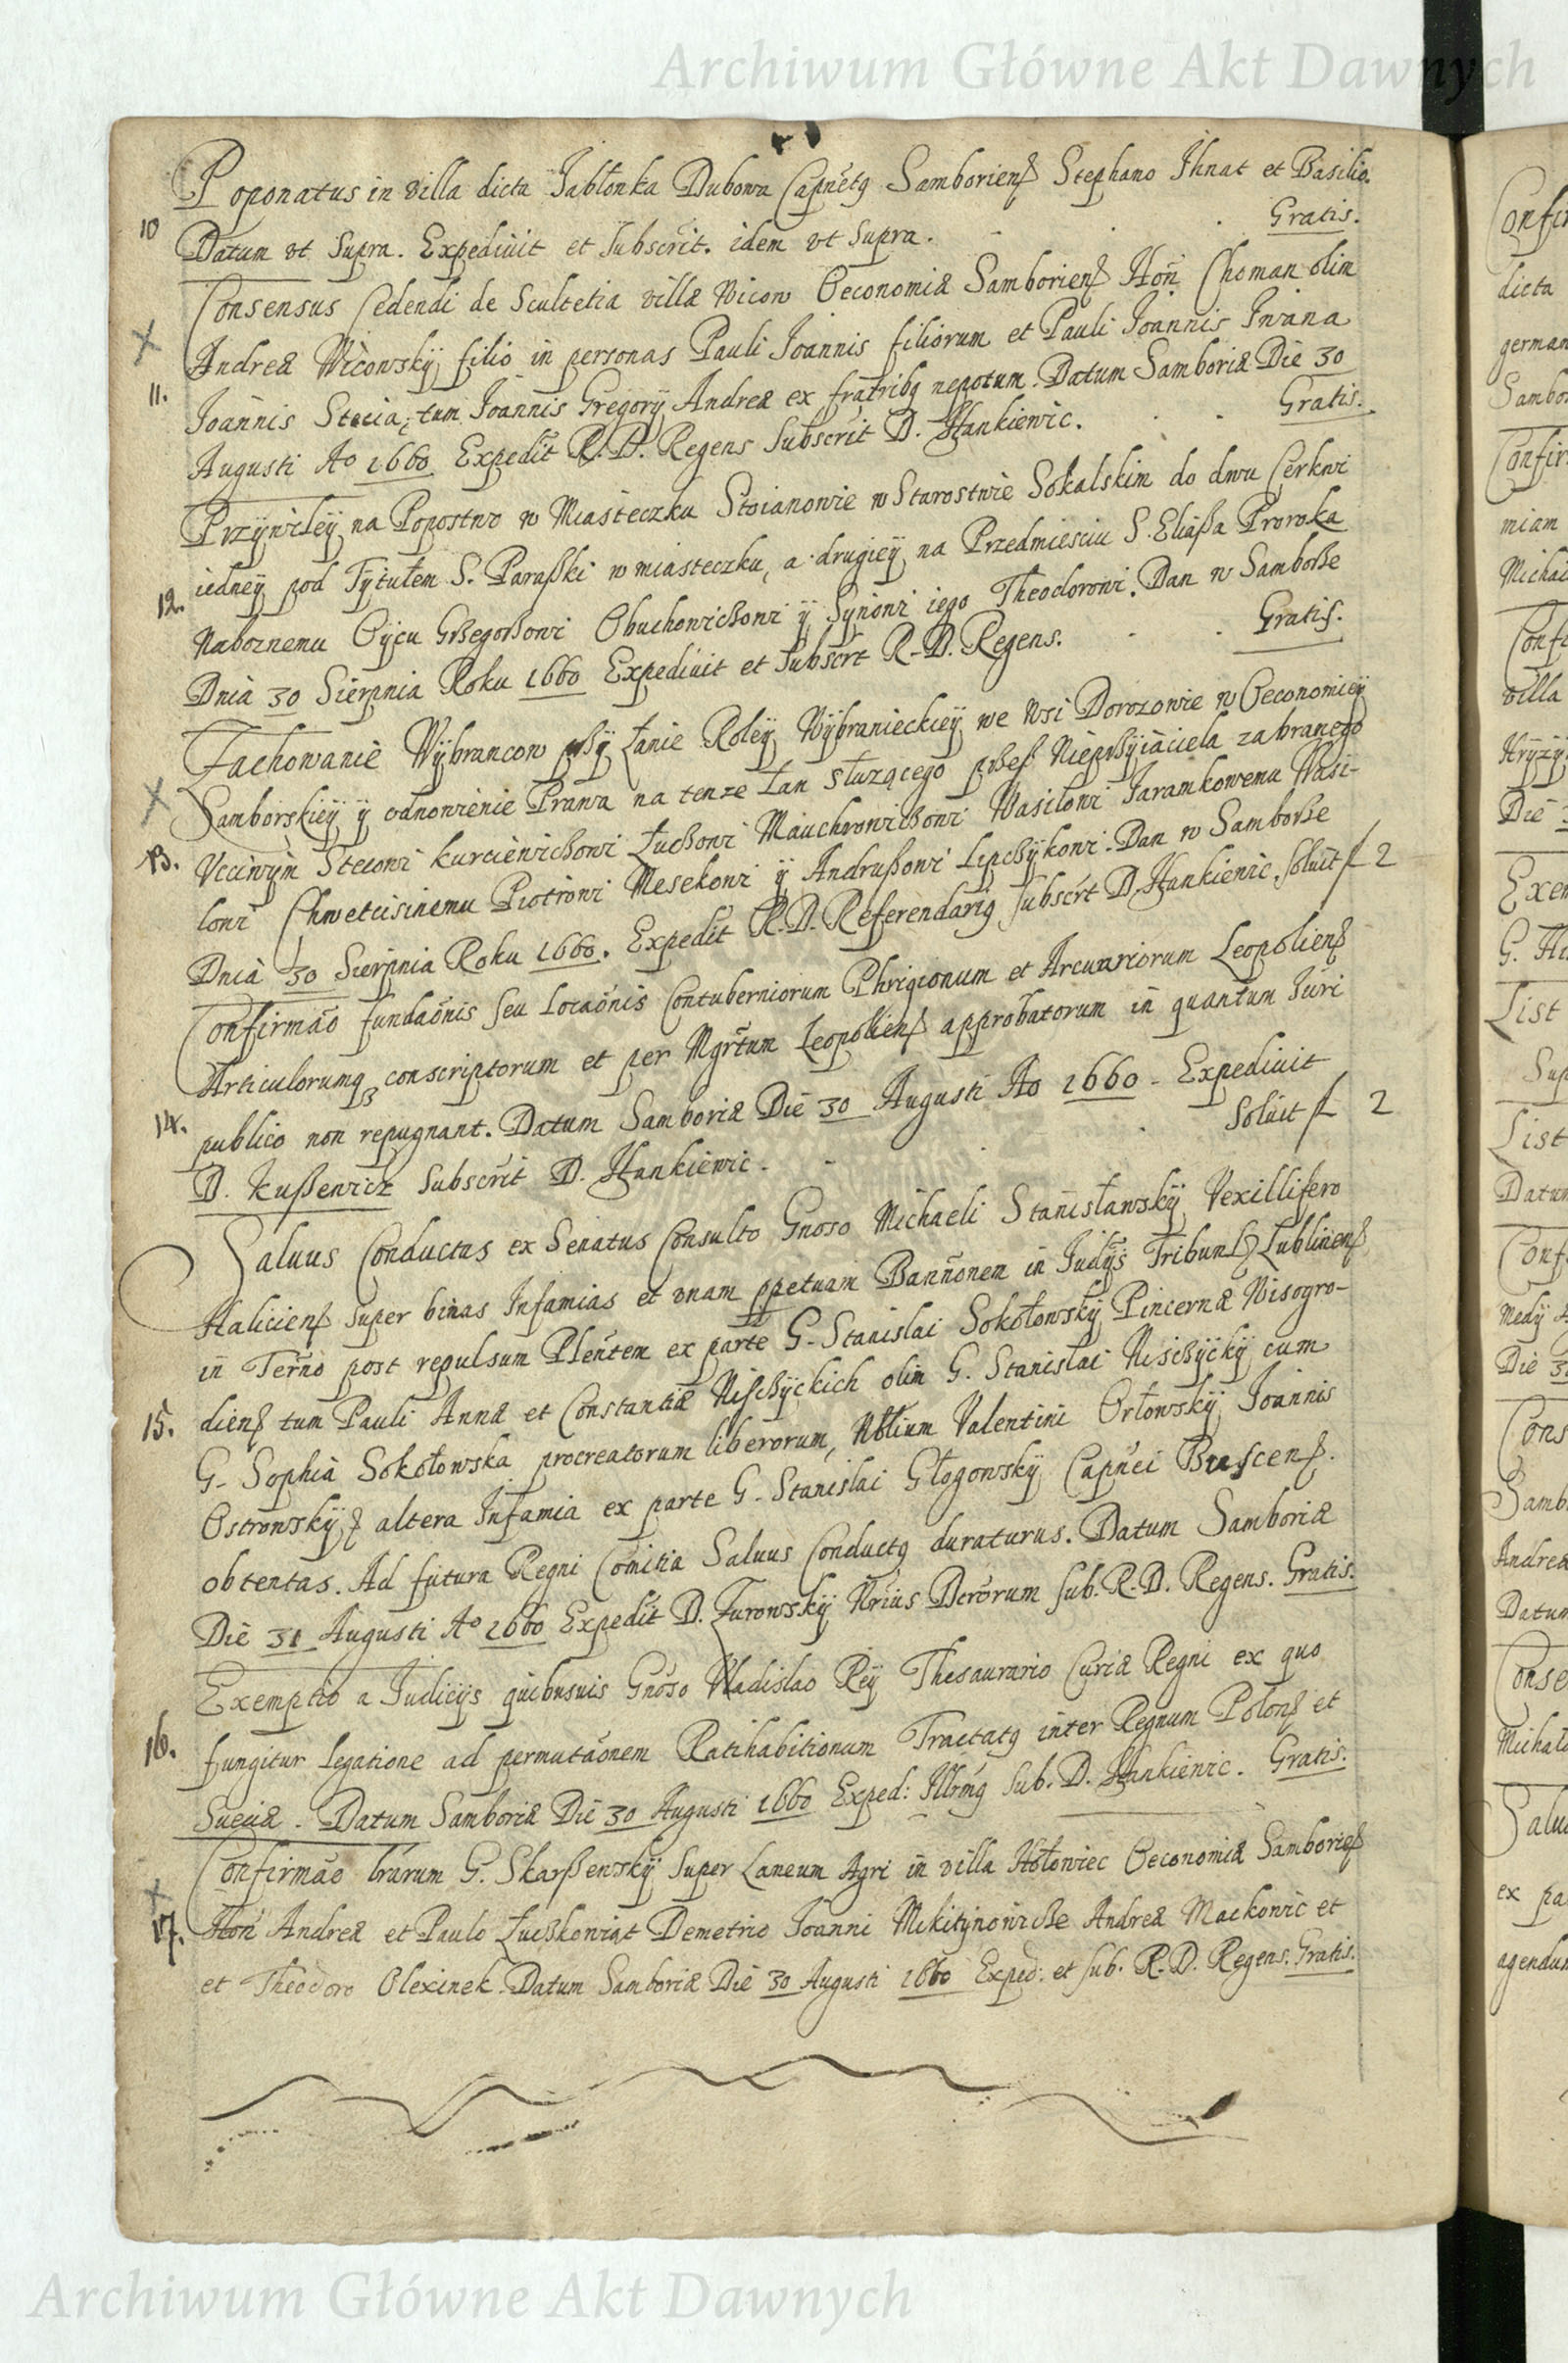 Archiwum Główne Akt Dawnych
Poponatus in villa dicta Jabłonka Dubowa Capnētg Samborienß Stephano Ihnat et Basilio.
10 Datum vt Supra. Expediuit et Subscrit. idem vt Supra. Gratis.
Consensus Cedendi de Scultetia villæ Wicow Oeconomiæ Samborienß Hon̄ Choman olim
Andreæ Wicowskÿ filio in personas Pauli Joannis filiorum et Pauli Joannis Iwana
11. Joannis Stecia, tum Joannis Gregorÿ Andreæ ex fratribg nepotum. Datum Samboriæ Die 30
Augusti Ao 1660. Expedit R. D. Regens Subscrit D. Hankiewic. Gratis.
Przÿwileÿ na Popostwo w Miasteczku Stoianowie w Starostwie Sokalskim do dwu Cerkwi
iedneÿ pod Tÿtułem S. Paraßki w miasteczku, a drugieÿ na Przedmiesciu S. Eliaßa Proroka
12. Naboznemu Oÿcu Grzegorzowi Obuchowiczowi ÿ Synowi iego Theodorowi. Dan w Samborze
Dnia 30 Sierpnia Roku 1660 Expediuit et Subscrt R. D. Regens. Gratis.
Zachowanie Wÿbrancow przÿ Łanie Roleÿ Wÿbranieckieÿ we Wsi Dorozowie w Oeconomieÿ
Samborskieÿ ÿ odnowienie Prawa na tenze Łan słuzącego przez Nieprzÿiaciela zabranego
13. Vcciwÿm Stecowi Kurciewiczowi Łuczowi Mauchrowiczowi Wasilowi Jaramkowemu Wasi-
lowi Chwetcisinemu Piotrowi Mesekowi ÿ Andrußowi Lepczÿkowi. Dan w Samborze
Dnia 30 Sierpnia Roku 1660. Expedit R. D. Referendarig Subscrt D. Hankiewic. Soluit f 2
Confirmāo fundaōnis seu locaōnis Contuberniorum Phrigionum et Arcuariorum Leopolienß
Articulorumq3 conscriptorum et per Mgrtum Leopolienß approbatorum in quantum Juri
14. publico non repugnant. Datum Samboriæ Die 30 Augusti Ao 1660 - Expediuit
D. Kußewicz Subscrit D. Hankiewic. Soluit f 2
Saluus Conductus ex Senatus Consulto Gnoso Michaeli Stanisławskÿ Vexillifero
Halicienß super binas Infamias et vnam ppetuam Bannōnem in Judÿs Tribunß Lublinenß
in Terno post repulsum Plentem ex parte G. Stanislai Sokołowskÿ Pincernæ Wisogro-
15. dienß tum Pauli Annæ et Constantiæ Nisczÿckich olim G. Stanislai Nisczÿckÿ cum
G. Sophia Sokołowska procreatorum liberorum, Nbłium Valentini Orłowskÿ Joannis
Ostrowskÿ altera Infamia ex parte G. Stanislai Głogowskÿ Capn̄ei Buscenß.
obtentas. Ad futura Regni Comitia Saluus Conductg duraturus. Datum Samboriæ
Die 31 Augusti Ao 1660 Expedit D. Zurowskÿ Nrius Dcrorum sub. R. D. Regens. Gratis.
Exemptio a Judicijs quibusuis Gnoso Vładislao Reÿ Thesaurario Curiæ Regni ex quo
16. fungitur legatione ad permutaōnem Ratihabitionum Tractatg inter Regnum Polonß et
Sueciæ. Datum Samboriæ Die 30 Augusti 1660 Exped: Sub. D. Hankiewic. Gratis.
Confirmāo lrārum G. Skarßewskÿ Super Laneum Agri in villa Hołowiec Oeconomiæ Samborienß
17. Hon̄ Andreæ et Paulo Łuczkowiat Demetrio Joanni Mikitÿnowicze Andreæ Mackowic et
et Theodoro Olexinek. Datum Samboriæ Die 30 Augusti 1660 Exped: et sub. R. D. Regens. Gratis.
Archiwum Główne Akt Dawnych